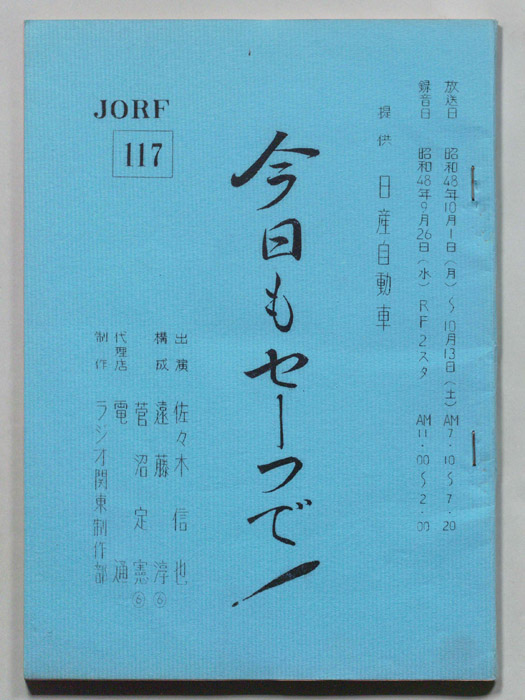 JORF
117
放送日 昭和48年10月1日(月)~10月13日(土) AM7.10~7.20
録音日 昭和48年9月26日(水) RF2スタ AM11.00~2.00
提供 日産自動車
今日もセーフで!
出演 佐々木信也
構成 遠藤淳⑥
菅沼定憲⑥
代理店 電通
制作 ラジオ関東制作部